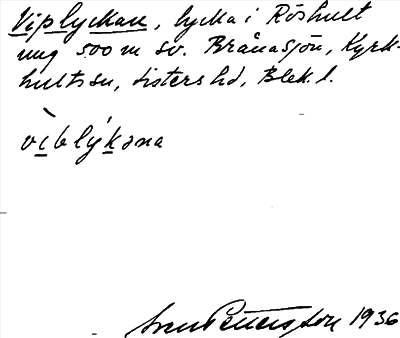 Viplyckan, lycka i Röshult
ung 500 m sv. Brånasjön, Kyrk-
hults sn, Listers hd, Blek. l.
vìblýkəna
Sven Petersson 1936